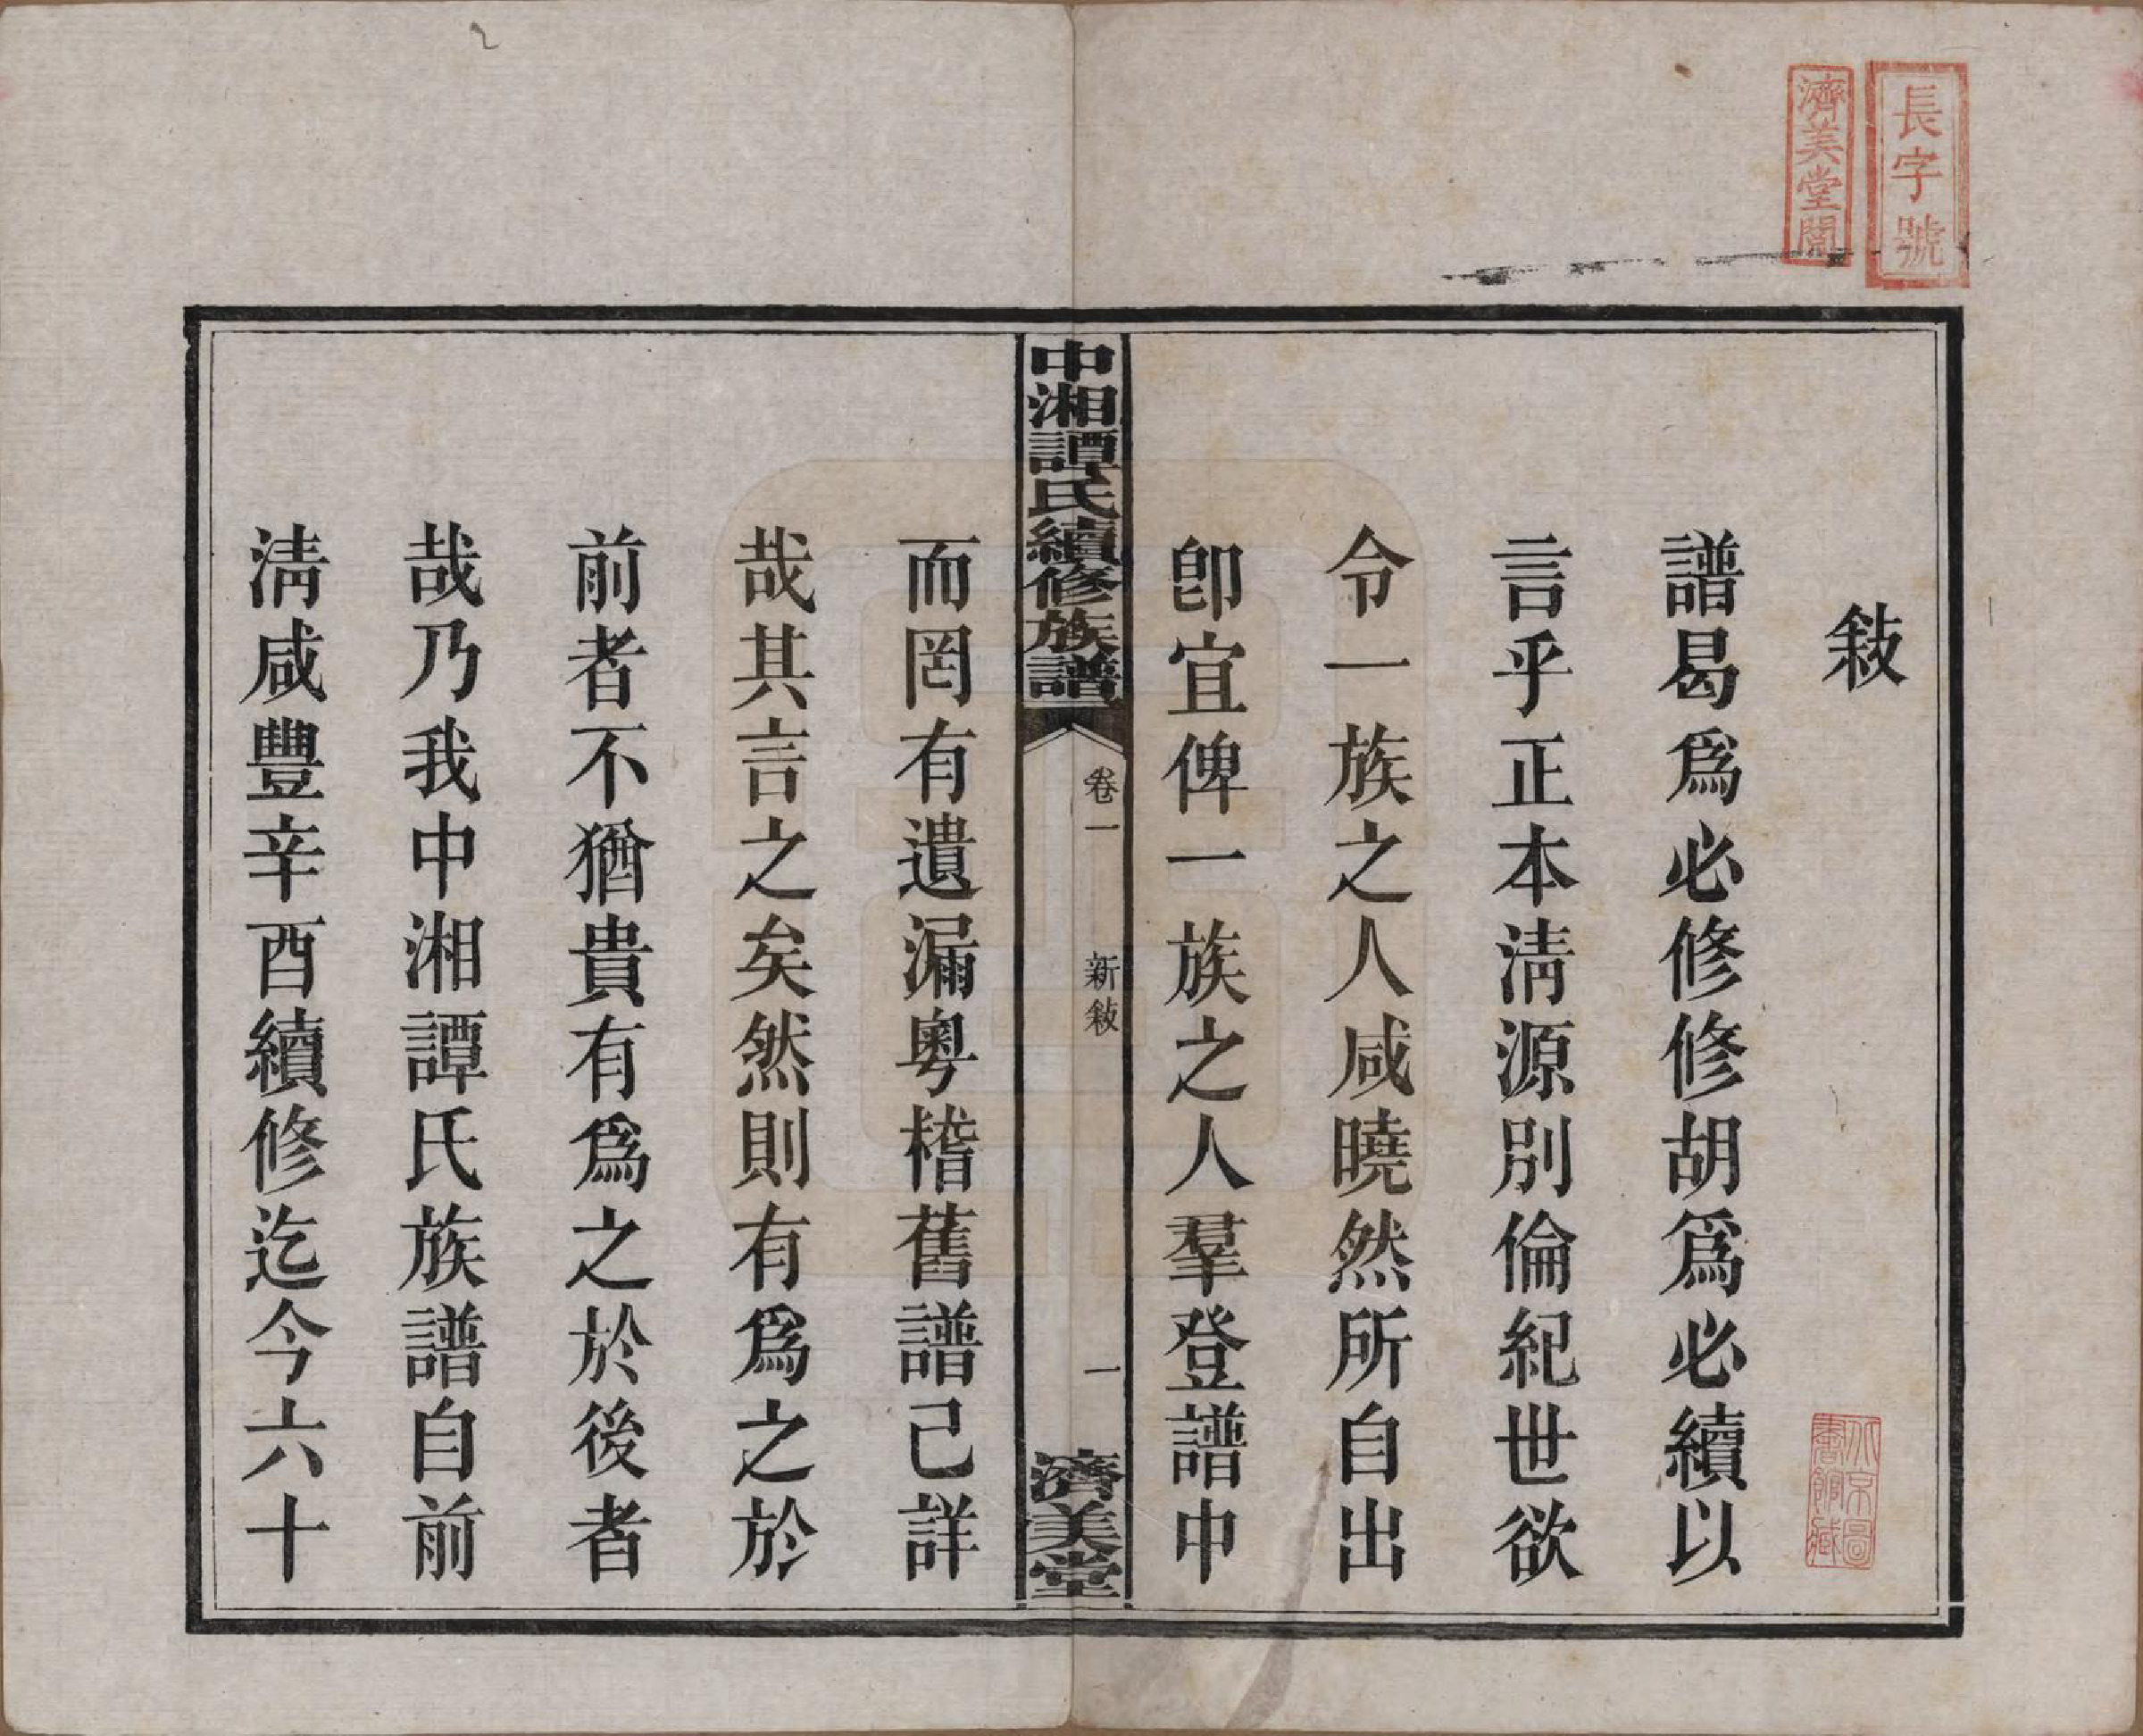 長字號
濟美堂閣
敍
譜曷爲必修修胡爲必續以
言乎正本淸源別倫紀世欲
令一族之人咸曉然所自出
卽宜俾一族之人羣登譜中
中湘譚氏續修族譜
卷一
新敍
一
濟美堂
而罔有遺漏粤稽舊譜己詳
哉其言之矣然則有爲之於
前者不猶貴有爲之於後者
哉乃我中湘譚氏族譜自前
淸咸豐辛酉續修迄今六十
北京圖
書館藏